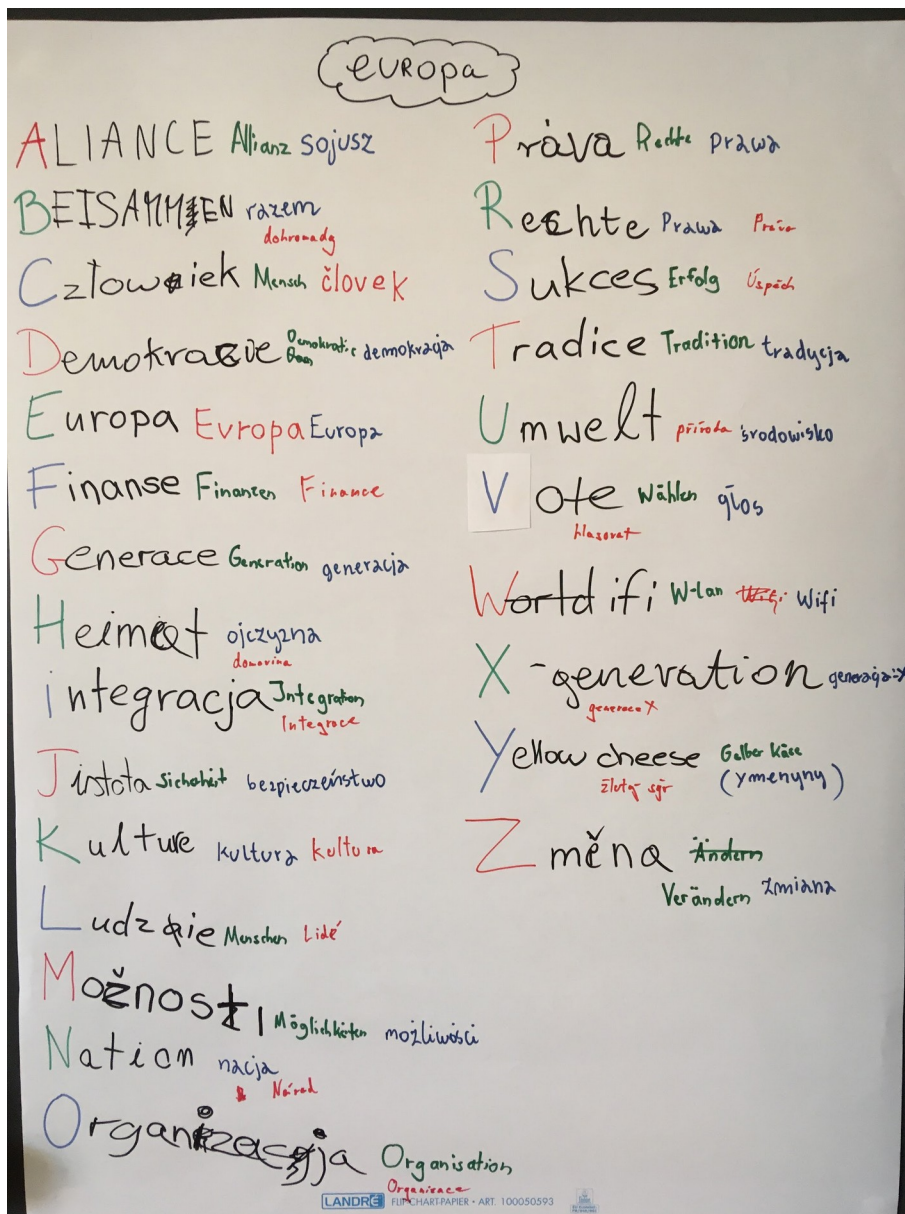 EUROPA
ALIANCE Allianz sojusz
BEISAMMEN razem
dohromady
Człowiek Mensch človek
Demokracie Demokratie demokracja
Europa Evropa Europa
Finanse Finanzen Finance
Generace Generation generacja
Heimat ojczyzna
domovina
integracja Integration
Integrace
Jistota Sicherheit bezpieczeństwo
Kulture kultura kultura
Ludzie Menschen Lidé
Možnosti Möglichkeiten możliwości
Nation nacja
Národ
Organizacja Organisation
Organizace
Práva Rechte prawa
Rechte Prawa Práva
Sukces Erfolg Úspěch
Tradice Tradition tradycja
Umwelt příroda środowisko
Vote Wählen głos
hlasovat
World ifi W-lan Wifi Wifi
X-generation generacja X
generace X
Yellow cheese Gelber Käse
žlutý sýr (ymenyny)
Změna Ändern
Verändern zmiana
LANDRÉ FLIPCHART-PAPIER • ART. 100050593